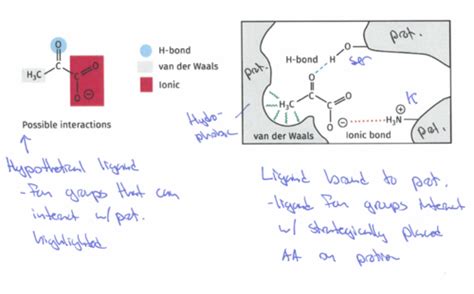 H-bond
van der Waals
Ionic
O
H₃C
O
O
⊖
Possible interactions
↑
Hypothetical ligand
- Fxn groups that can
interact w/ prot.
highlighted
prot.
H-bond
HO
H
ser
prot.
O
H₃C
O
O
⊖
Hydro-
phobic
van der Waals
Ionic bond
H₃N
⊕
K
prot.
Ligand bound to prot.
- ligand fxn groups interact
w/ strategically placed
AA on protein